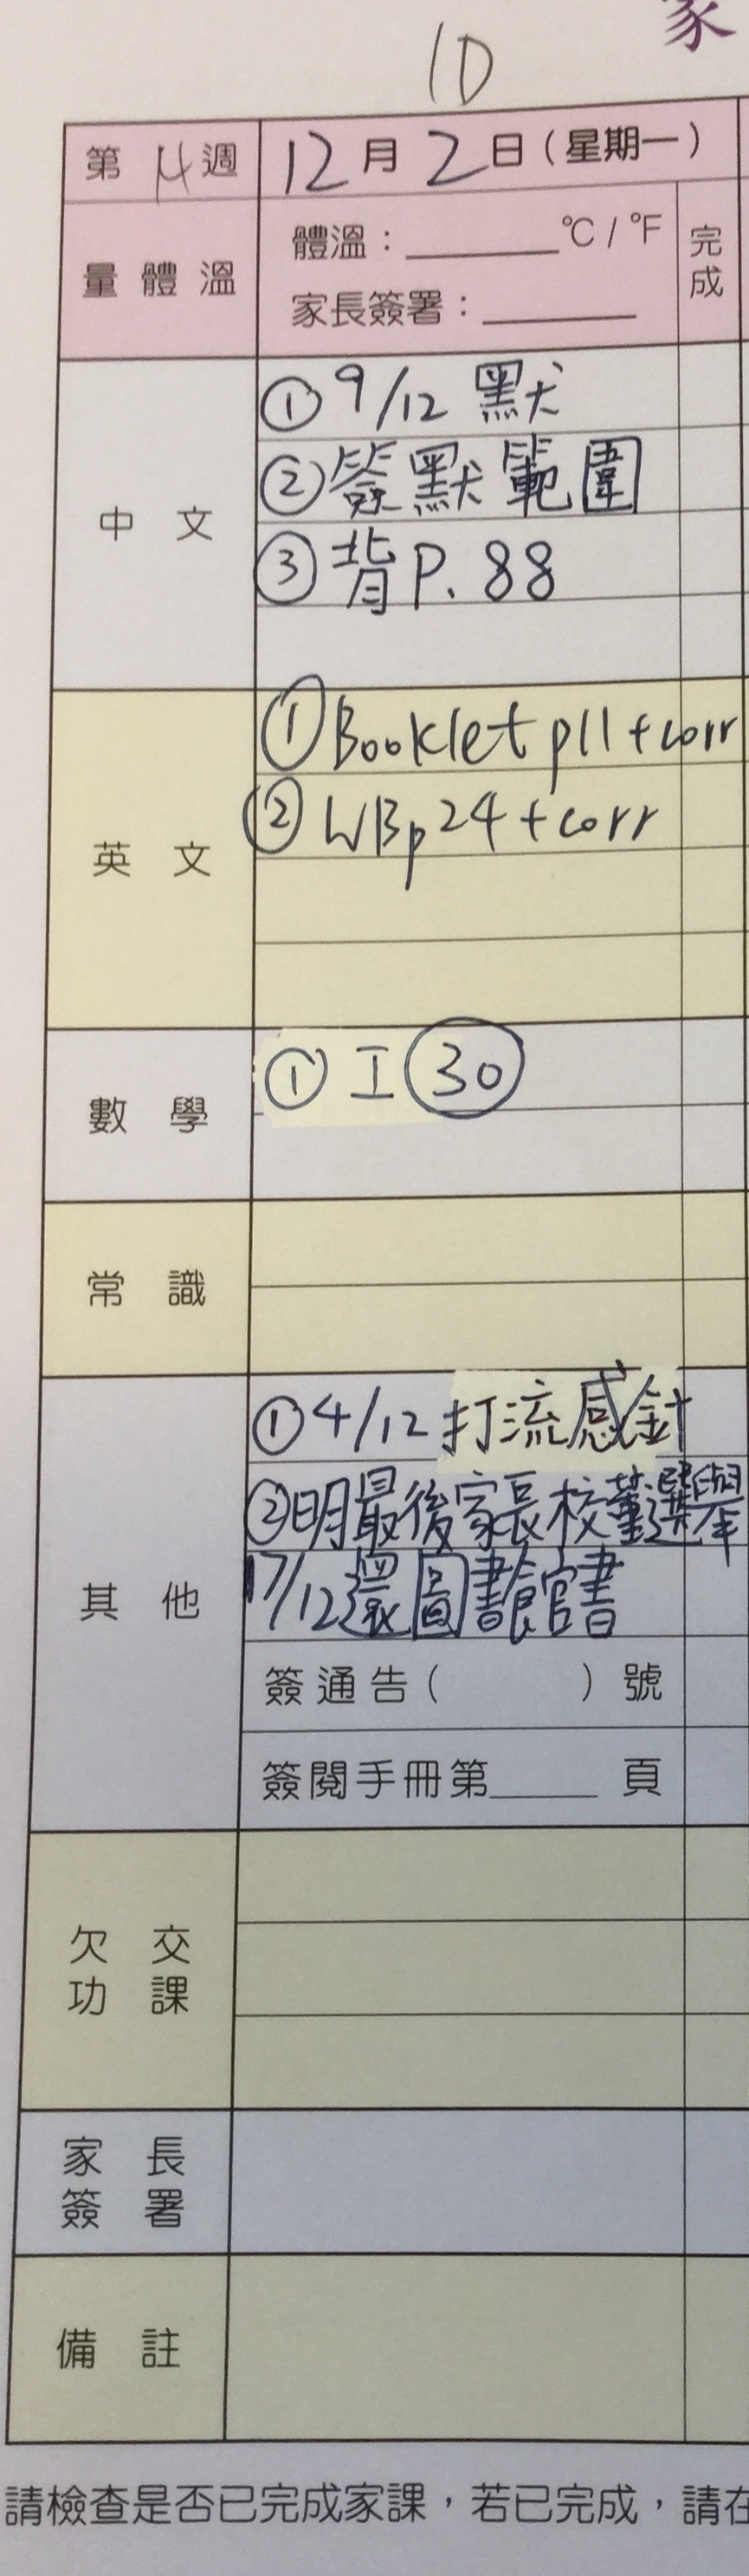 家
1D
第 14 週 12 月 2 日 (星期一)
量體溫 體溫：______ °C / °F 完成
家長簽署：______
中文
① 9/12 默
② 簽默範圍
③ 背 P. 88
英文
① Booklet p11 + corr
② WB p24 + corr
數學
① I ㉚
常識
其他
① 4/12 打流感針
② 明最後家長校董選舉
17/12 還圖書館書
簽通告 (      ) 號
簽閱手冊第_____ 頁
欠交功課
家長簽署
備註
請檢查是否已完成家課，若已完成，請在